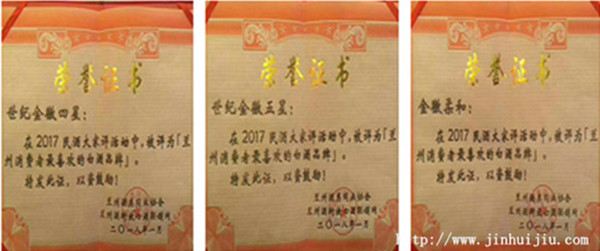 荣誉证书
世纪金徽四星：
在2017民酒大家评活动中，被评为「兰
州消费者最喜欢的白酒品牌」。
特发此证，以资鼓励！
二〇一八年一月
荣誉证书
世纪金徽五星：
在2017民酒大家评活动中，被评为「兰
州消费者最喜欢的白酒品牌」。
特发此证，以资鼓励！
二〇一八年一月
荣誉证书
金徽柔和：
在2017民酒大家评活动中，被评为「兰
州消费者最喜欢的白酒品牌」。
特发此证，以资鼓励！
二〇一八年一月
http://www.jinhuijiu.com